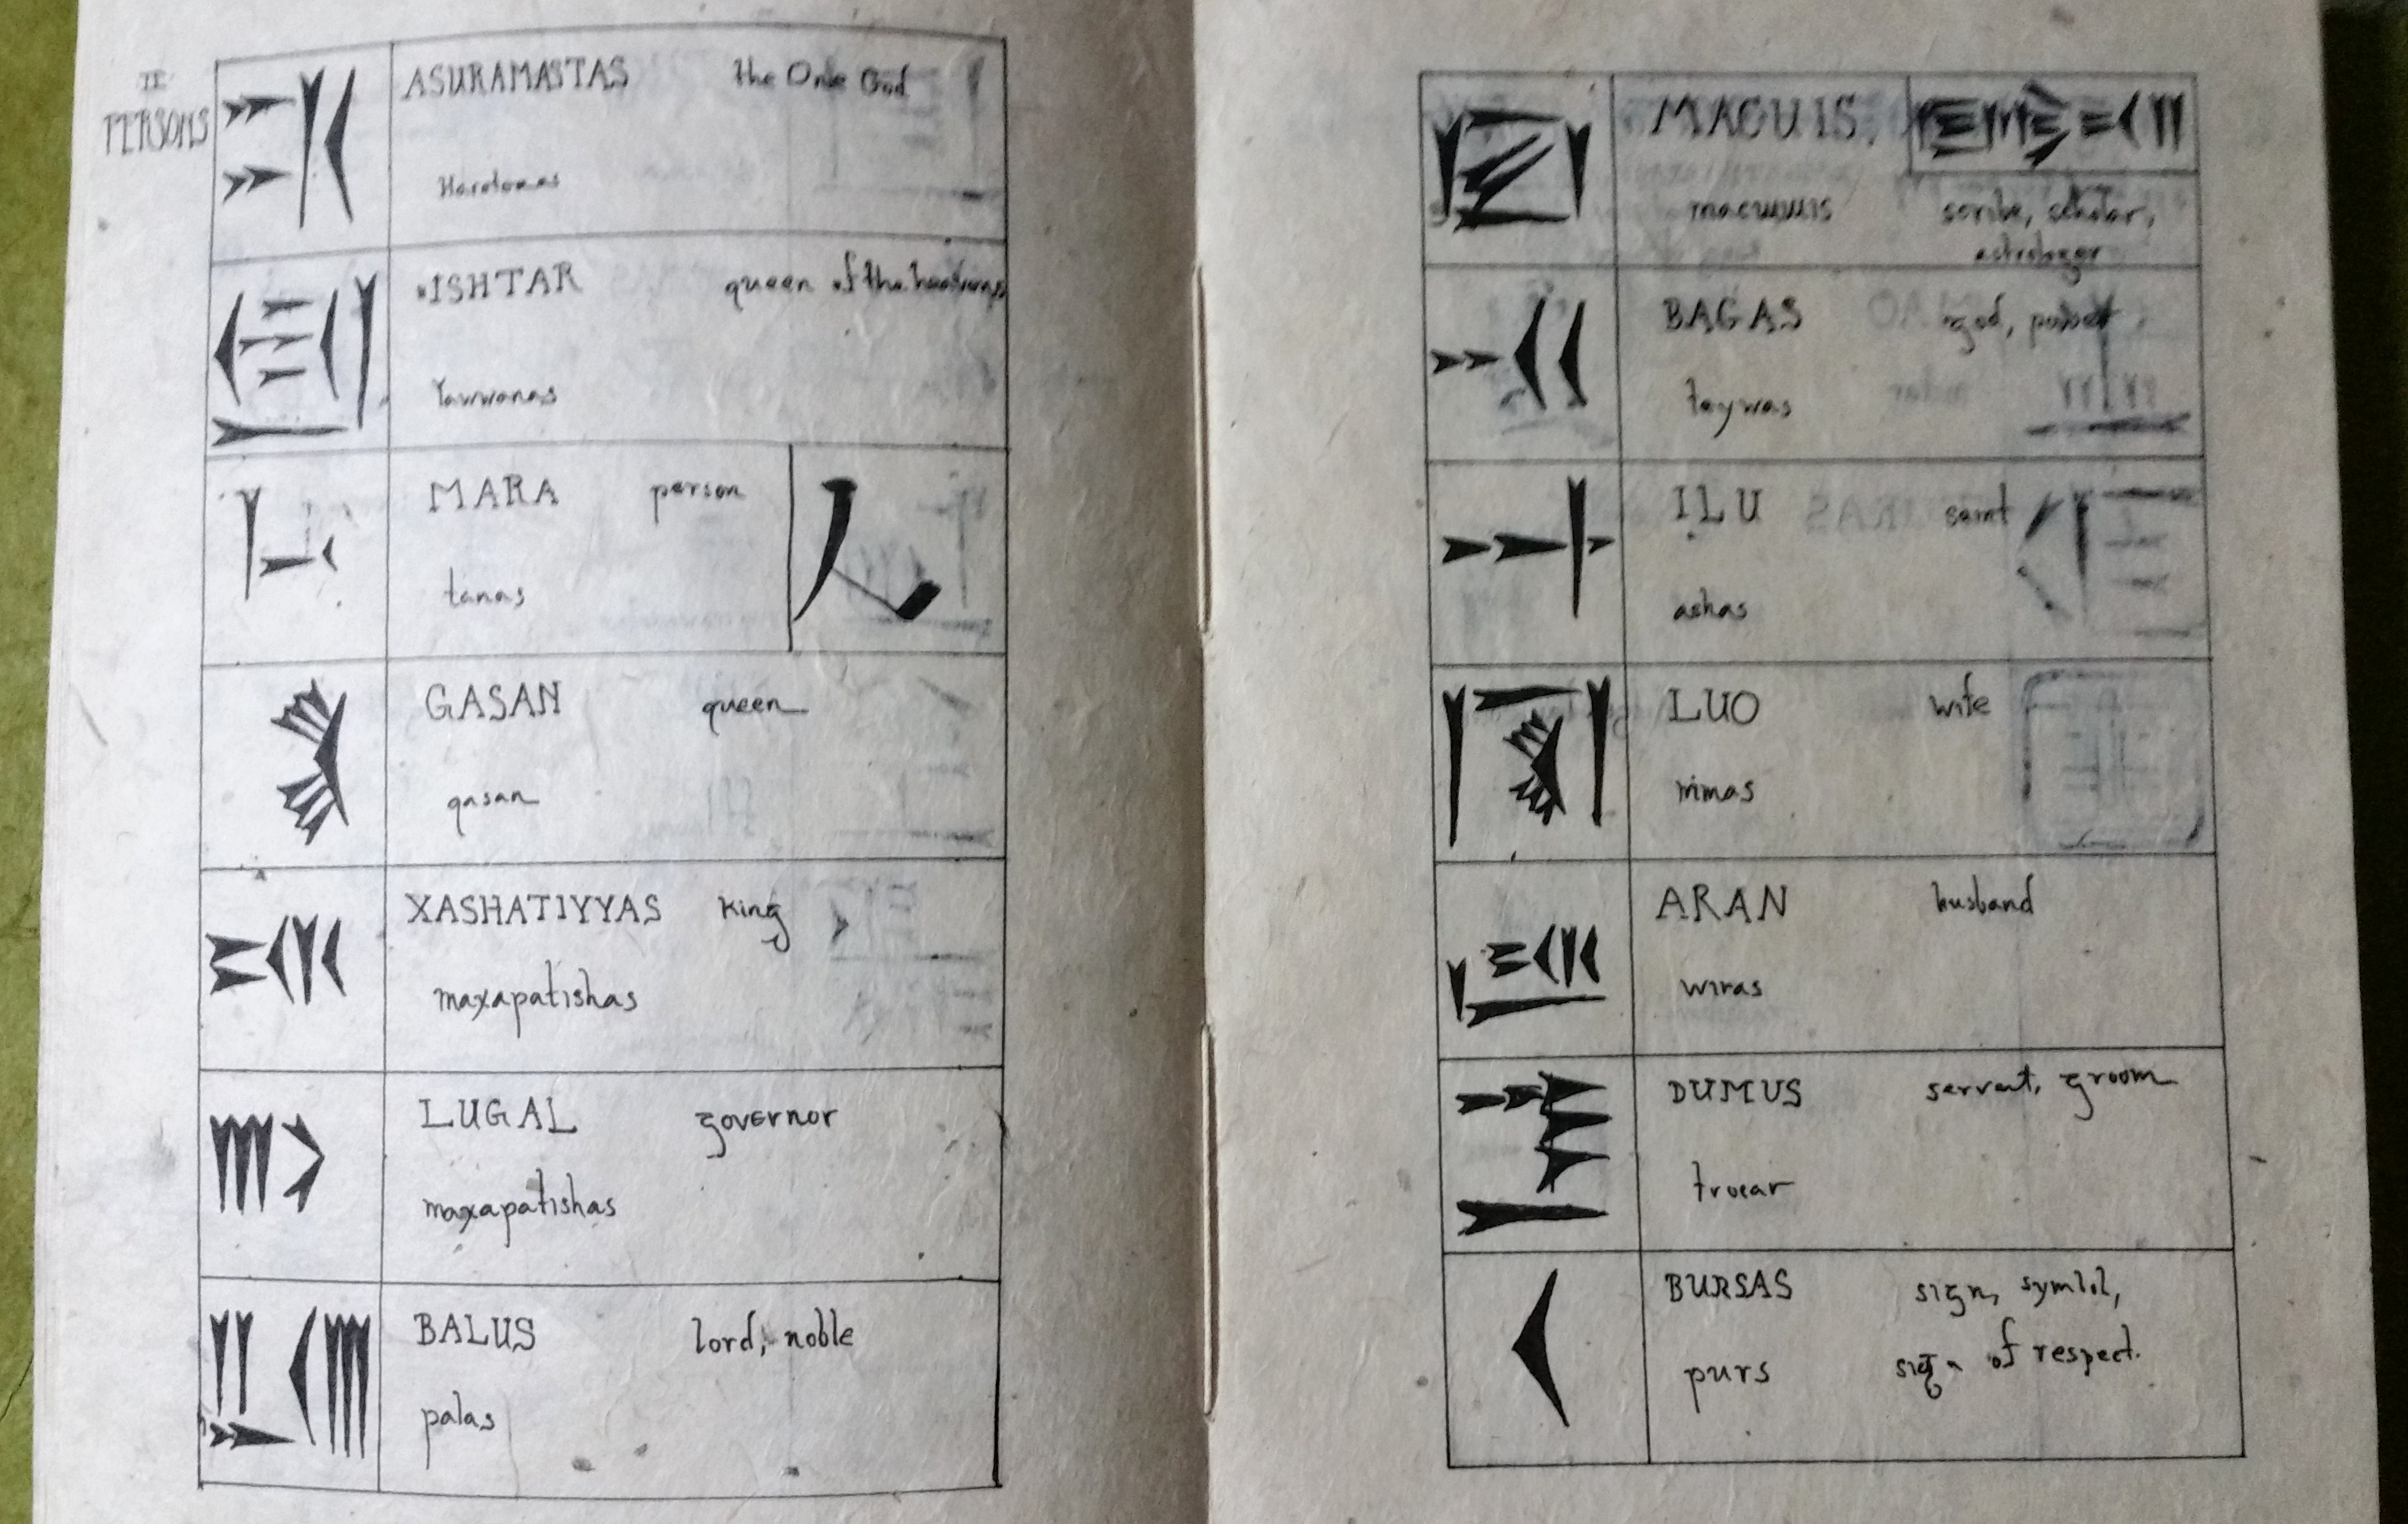 II
PERSONS
ASURAMASTAS the One God
ISHTAR queen of the heavens
Yawwanas
MARA person
人
tanas
GASAN queen
qasan
XASHATIYYAS king
maxapatishas
LUGAL governor
maxapatishas
BALUS lord, noble
palas
MAGUIS
scribe, scholar,
astrologer
BAGAS god,
taywas
ILU saint
ashas
LUO wife
mimas
ARAN husband
wiras
DUMUS servant, groom
truear
BURSAS sign, symbol,
purs sign of respect.